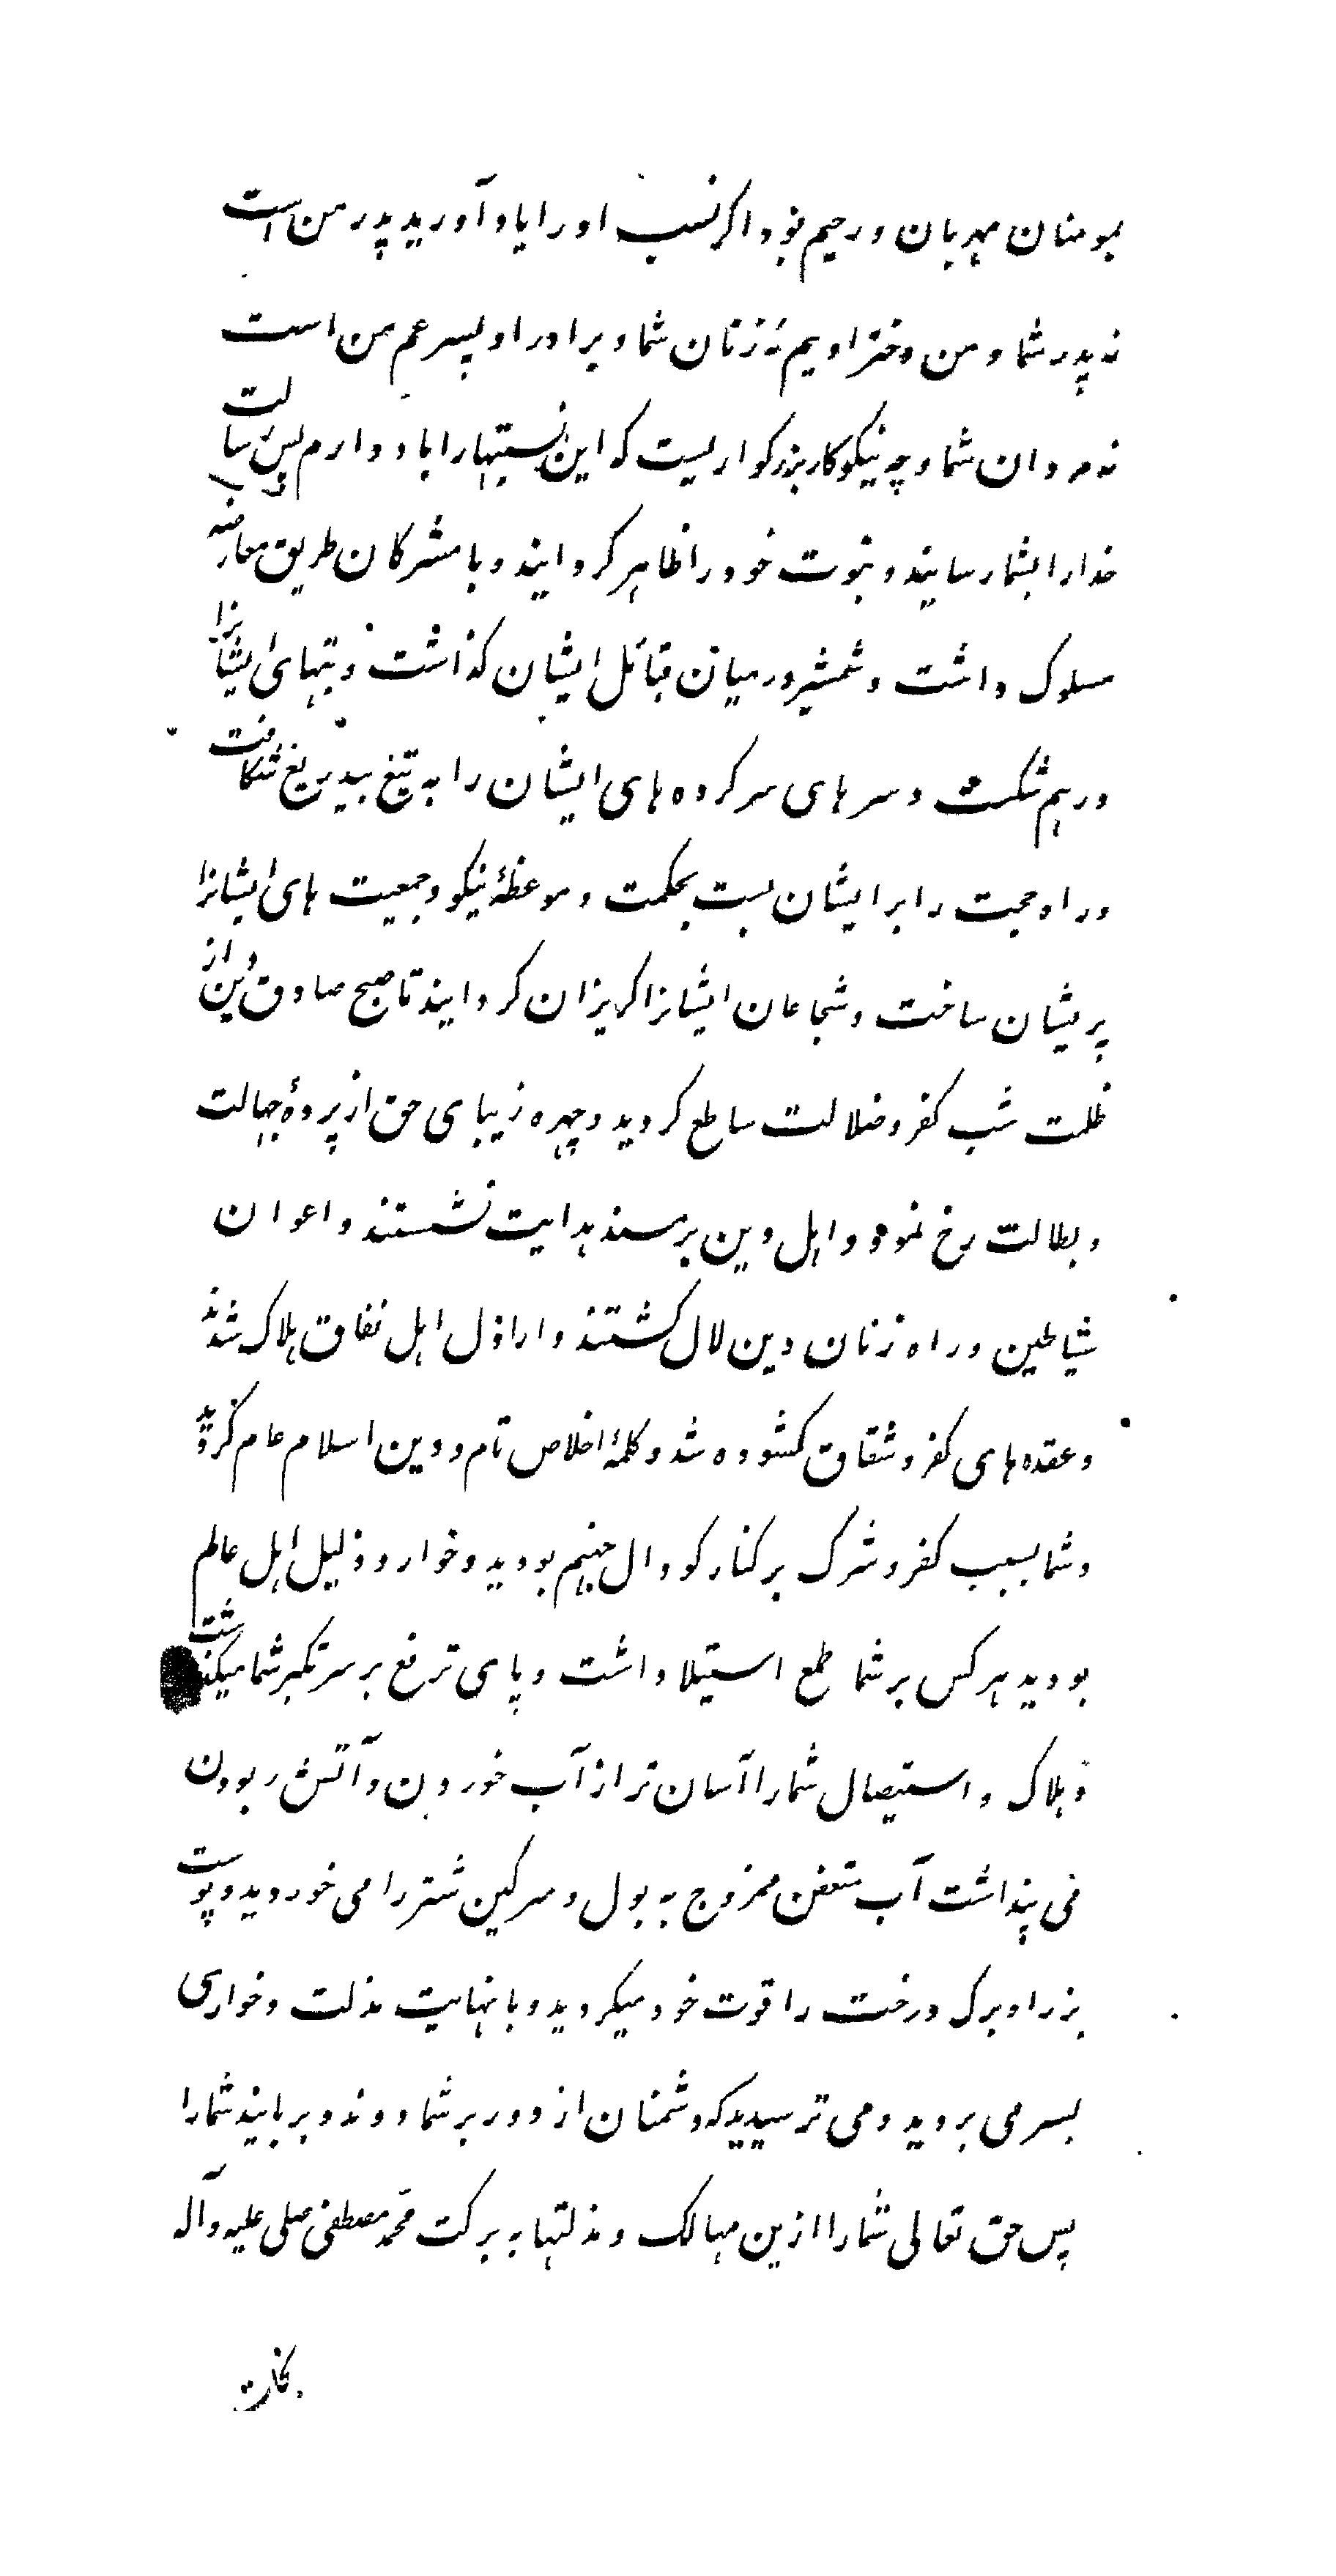 بمومنان مهربان و رحیم بود اگر نسب او را یاد آورید پدر من است
نه پدر شما و من دختر اویم نه زنان شما و برادر او پسر عم من است
نه مردان شما و چه نیکوکار بزرگواریست که این نسبتها را با او دارم پس رسالت
خدا را بشما رسانید و نبوت خود را ظاهر گردانید و با مشرکان طریق معارضه
مسلوک داشت و شمشیر در میان قبائل ایشان گذاشت و بتهای ایشانرا
در هم شکست و سرهای سرکرده های ایشان را به تیغ بیدریغ شکافت
و راه حجت را بر ایشان بست بحکمت و موعظهٔ نیکو و جمعیت های ایشانرا
پریشان ساخت و شجاعان ایشانرا گریزان گردانید تا صبح صادق دین از
ظلمت شب کفر و ضلالت ساطع گردید و چهره زیبای حق از پردهٔ جهالت
و بطالت رخ نمود و اهل دین بر مسند هدایت نشستند و اعوان
شیاطین و راه زنان دین لال گشتند و اراذل اهل نفاق هلاک شدند
و عقده های کفر و شقاق گشوده شد و کلمهٔ اخلاص تام و دین اسلام عام گردید
و شما بسبب کفر و شرک بر کنار گودال جهنم بودید و خوار و ذلیل اهل عالم
بودید هر کس بر شما طمع استیلا داشت و پای ترفع بر سر تکبر شما میگذاشت
و هلاک و استیصال شما را آسان تر از آب خوردن و آتش ربودن
می پنداشت آب متعفن ممزوج به بول و سرگین شتر را می خوردید و پوست
بز را و برگ درخت را قوت خود میکردید و با نهایت مذلت و خواری
بسر می بردید و می ترسیدید که دشمنان از دور بر شما دوند و بربایند شما را
پس حق تعالی شما را ازین مهالک و مذلتها به برکت محمد مصطفی صلی علیه و آله